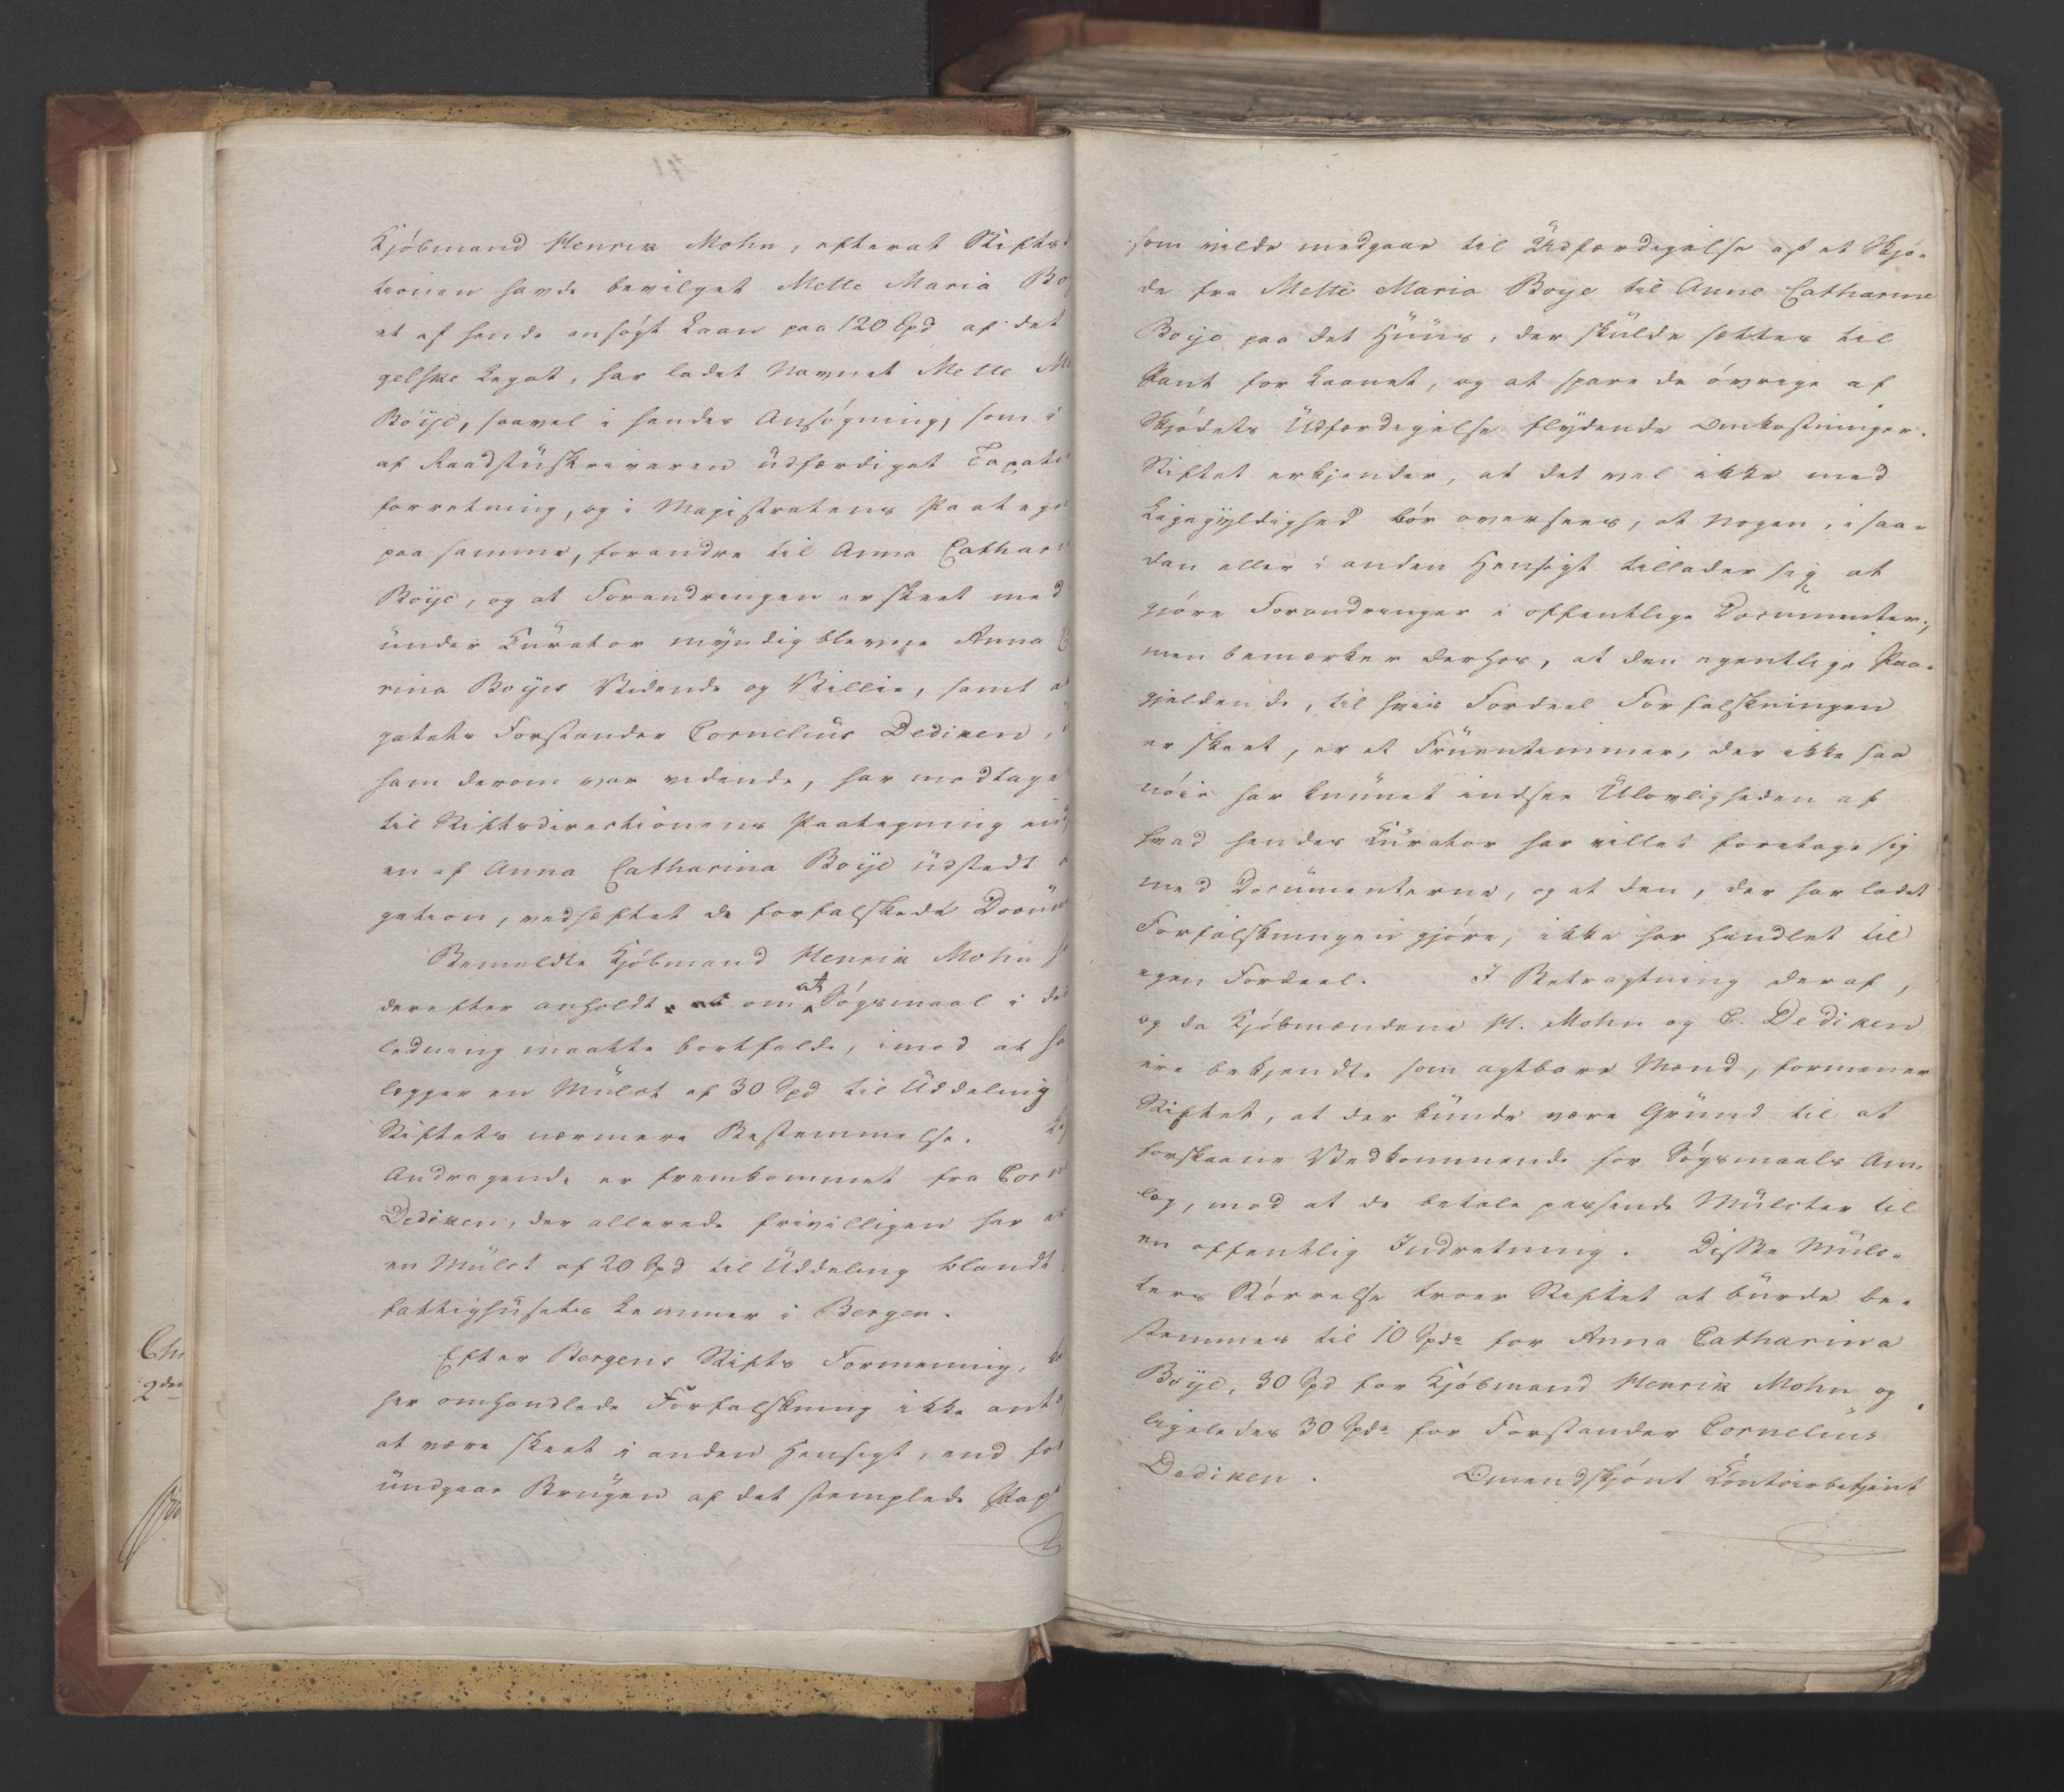 Kjöbmand Henrik Mohn, efterat Stifts
tionen havde bevilget Mette Maria Bo
et af hende ansøgt Laan paa 120 Spd af det
gelske Legat, har ladet Navnet Mette M
Böije, saavel i hendes Ansøgning, som i
af Raadstüskriveren üdfærdiget Taxati
forretning, og i Magistratens Paategn
paa samme, forandre til Anna Cathari
Böije, og at Forandringen er skeet med
ünder Kürator myndig blevne Anna C
rina Boÿes Vidende og Villie, samt a
gatets Forstander Cornelius Dediken,
ham derom var vidende, har modtage
til Stiftsdirectionens Paategning ind
en af Anna Catharina Boije üdstedt
gation, vedhæftet de forfalskede Docüm
Bemeldte Kjöbmand Henrik Mohn h
derefter anholdt om at Søgsmaal i de
ledning maatte bortfalde, imod at ha
lægger en Mülct af 30 Spd til Üddeling
Stiftets nærmere Bestemmelse.
Andragende er fremkommet fra Corn
Dediken, der allerede frivilligen har e
en Mülct af 20 Spd til Üddeling blandt
fattighüsets Lemmer i Bergen.
Efter Bergens Stifts Formening,
her omhandlede Forfalskning ikke anta
at være skeet i anden Hensigt, end fo
ündgaae Brügen af det stemplede Papi
som vilde medgaae til Üdfærdigelse af et Skjö-
de fra Mette Maria Boye til Anne Catharine
Boije paa det Hüüs, der skülde sættes til
Pant for Laanet, og at spare de övrige af
Skjödets Üdfærdigelse flydende Omkostninger.
Stiftet erkjender, at det vel ikke med
Ligegyldighed bör oversees, at Nogen, i saa-
dan eller i anden Hensigt tillader sig at
gjöre Forandringer i offentlige Documenter;
men bemærker derhos, at den egentlige Paa-
gjeldende, til hvis Fordeel Forfalskningen
er skeet, er et Früentimmer, der ikke saa
nöie har künnet indsee Ülovligheden af
hvad hendes Kürator har villet foretage sig
med Documenterne, og at den, der har ladet
Forfalskningen gjöre, ikke har handlet til
egen Fordeel. I Betragtning deraf,
og da Kjöbmændene H. Mohn og C. Dediken
ere bekjendte som agtbare Mænd, formener
Stiftet, at der künde være Gründ til at
forskaane Vedkommende for Søgsmaals An-
læg, mod at de betale passende Mülcter til
en offentlig Indretning. Disse Mülc-
ters Störrelse troer Stiftet at bürde be-
stemmes til 10 Spd for Anna Catharina
Böije, 30 Spd for Kjöbmand Henrik Mohn og
ligeledes 30 Spd for Forstander Cornelius
Dediken. Omendskjönt Contoirbetjent